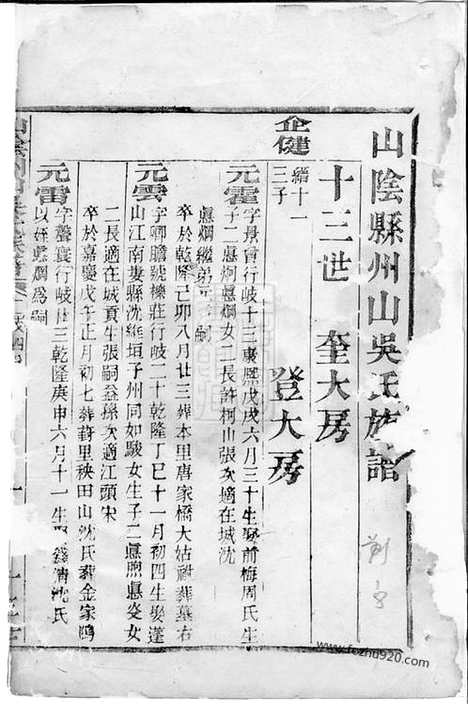 山陰縣州山吳氏族譜
十三世
奎大房
登大房
企健
緒十一
三子
元霍
字景會行岐十三康熙戊戌六月三十生娶前梅周氏生
子二惪炯惪爛女二長許柯山張次適在城沈
元雲
卒於乾隆己卯八月廿三葬本里唐家橋大姑祉葬墓右
字卿瞻號檪莊行岐二十乾隆丁巳十一月初四生娶蓬
山江南婁縣沈維垣子州同如駿女生子二惪煦惪炎女
二長適在城貢生張嗣益孫次適江頭宋
卒於嘉慶戊午正月初七葬葑里秧田山沈氏葬金家隝
元雷
字聲寰行岐廿三乾隆庚申六月十一生
以姪惪爛為嗣
www.fozhu920.com